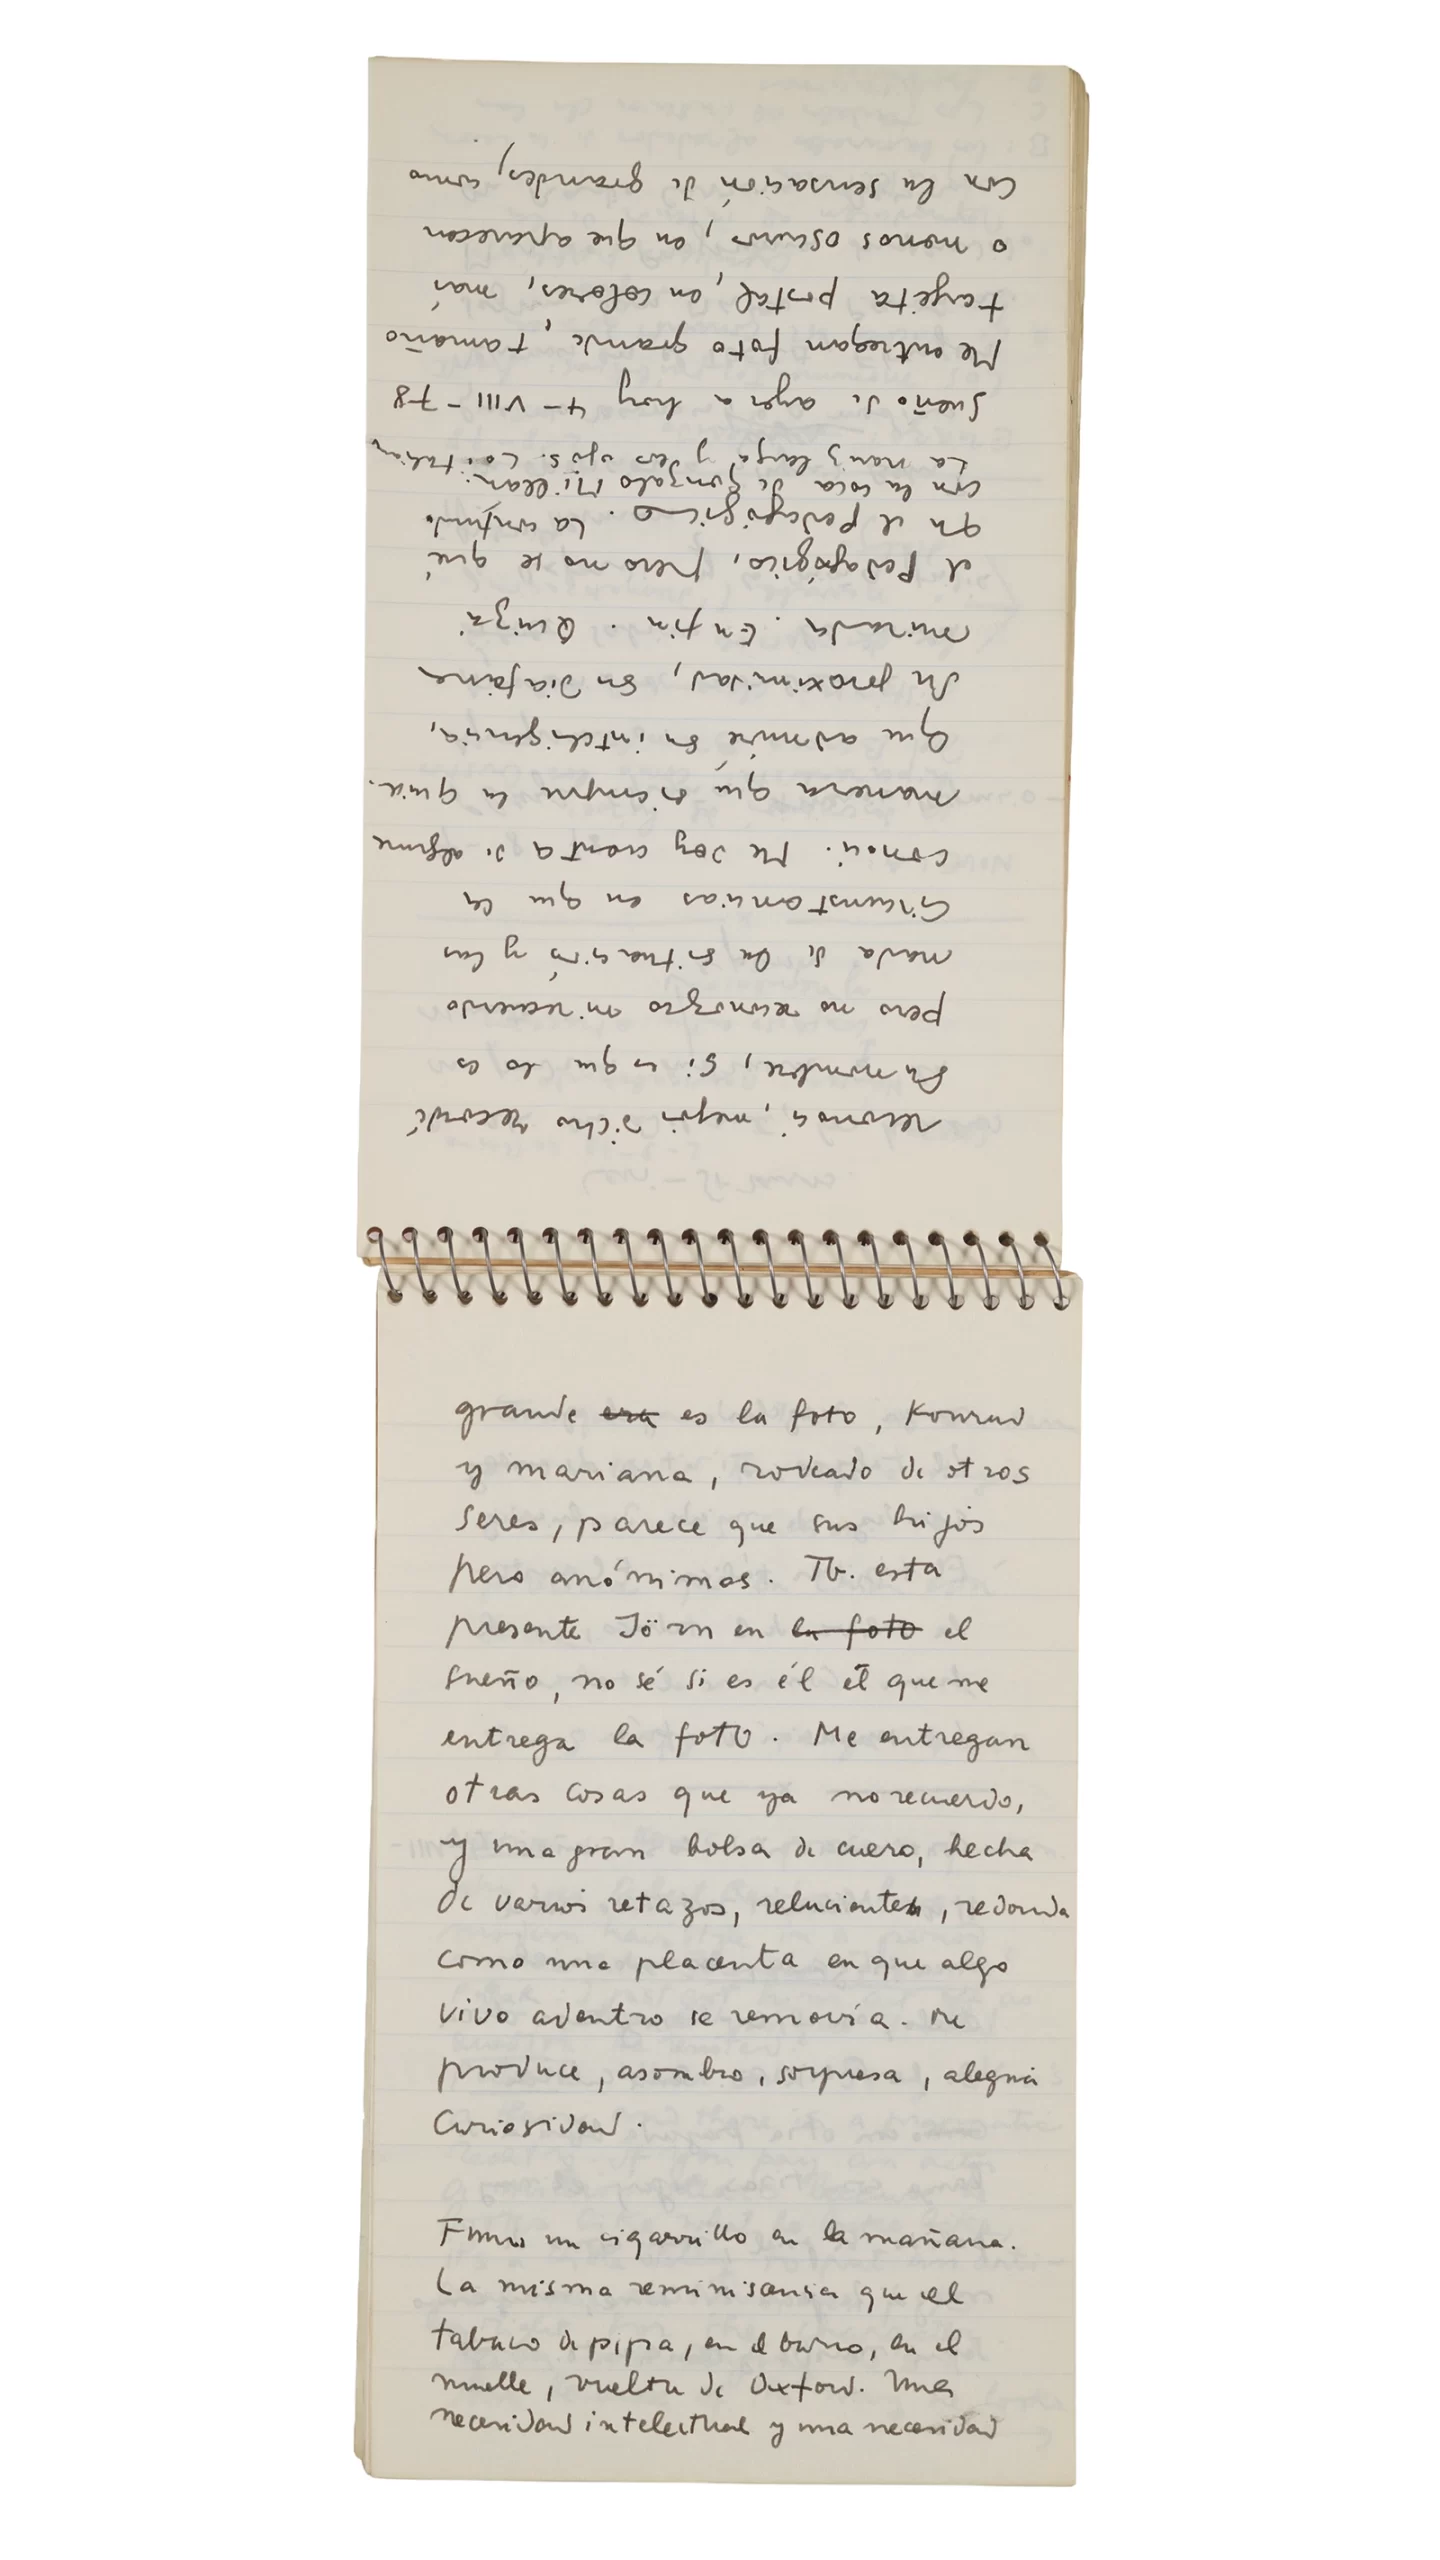 reconocí, mejor dicho recordé
su nombre, si es que lo es
pero no reconozco mi recuerdo
nada de la situación y las
circunstancias en que la
conocí. Me doy cuenta de alguna
manera que siempre la quise.
Que admiré su inteligencia,
su proximidad, su diáfana
mirada. En fin. Quizá
el Pedagógico, pero no se qué
en el Pedagógico. La confundo
con la de Gonzalo Millan:
La nariz larga y los ojos. La italiana
Sueño de ayer a hoy 4-VIII-78
Me entregan foto grande, tamaño
targeta postal, en colores, más
o menos oscuro, en que aparecen
con la sensación de grandes, como
grande era es la foto, Konrad
y mariana, rodeado de otros
seres, parece que sus hijos
pero anónimos. Tb. esta
presente Jörn en la foto el
sueño, no sé si es él el que me
entrega la foto. Me entregan
otras cosas que ya no recuerdo,
y una gran bolsa de cuero, hecha
de varios retazos, reluciente, redonda
como una placenta en que algo
vivo adentro se removía. Me
produce, asombro, sorpresa, alegria
curiosidad.
Fumo un cigarrillo en la mañana.
La misma reminisensia que el
tabaco de pipa, en el barco, en el
muelle, vuelta de Oxford. Una
necesidad intelectual y una necesidad